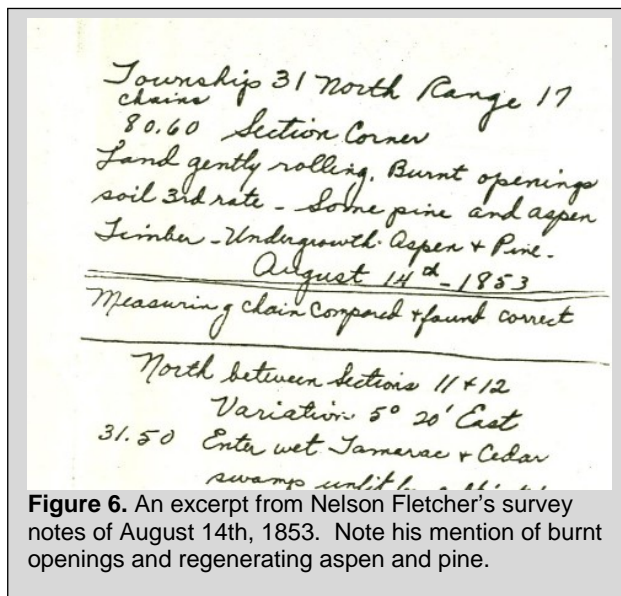 Township 31 North Range 17
chains
80.60 Section Corner
Land gently rolling. Burnt openings
soil 3rd rate - Some pine and aspen
Timber - Undergrowth. Aspen + Pine.
August 14th - 1853
Measuring chain Compared + found correct
North between Sections 11 + 12
Variation 5° 20' East
31.50 Enter wet Tamerac + Cedar
swamp
Figure 6. An excerpt from Nelson Fletcher's survey
notes of August 14th, 1853.  Note his mention of burnt
openings and regenerating aspen and pine.